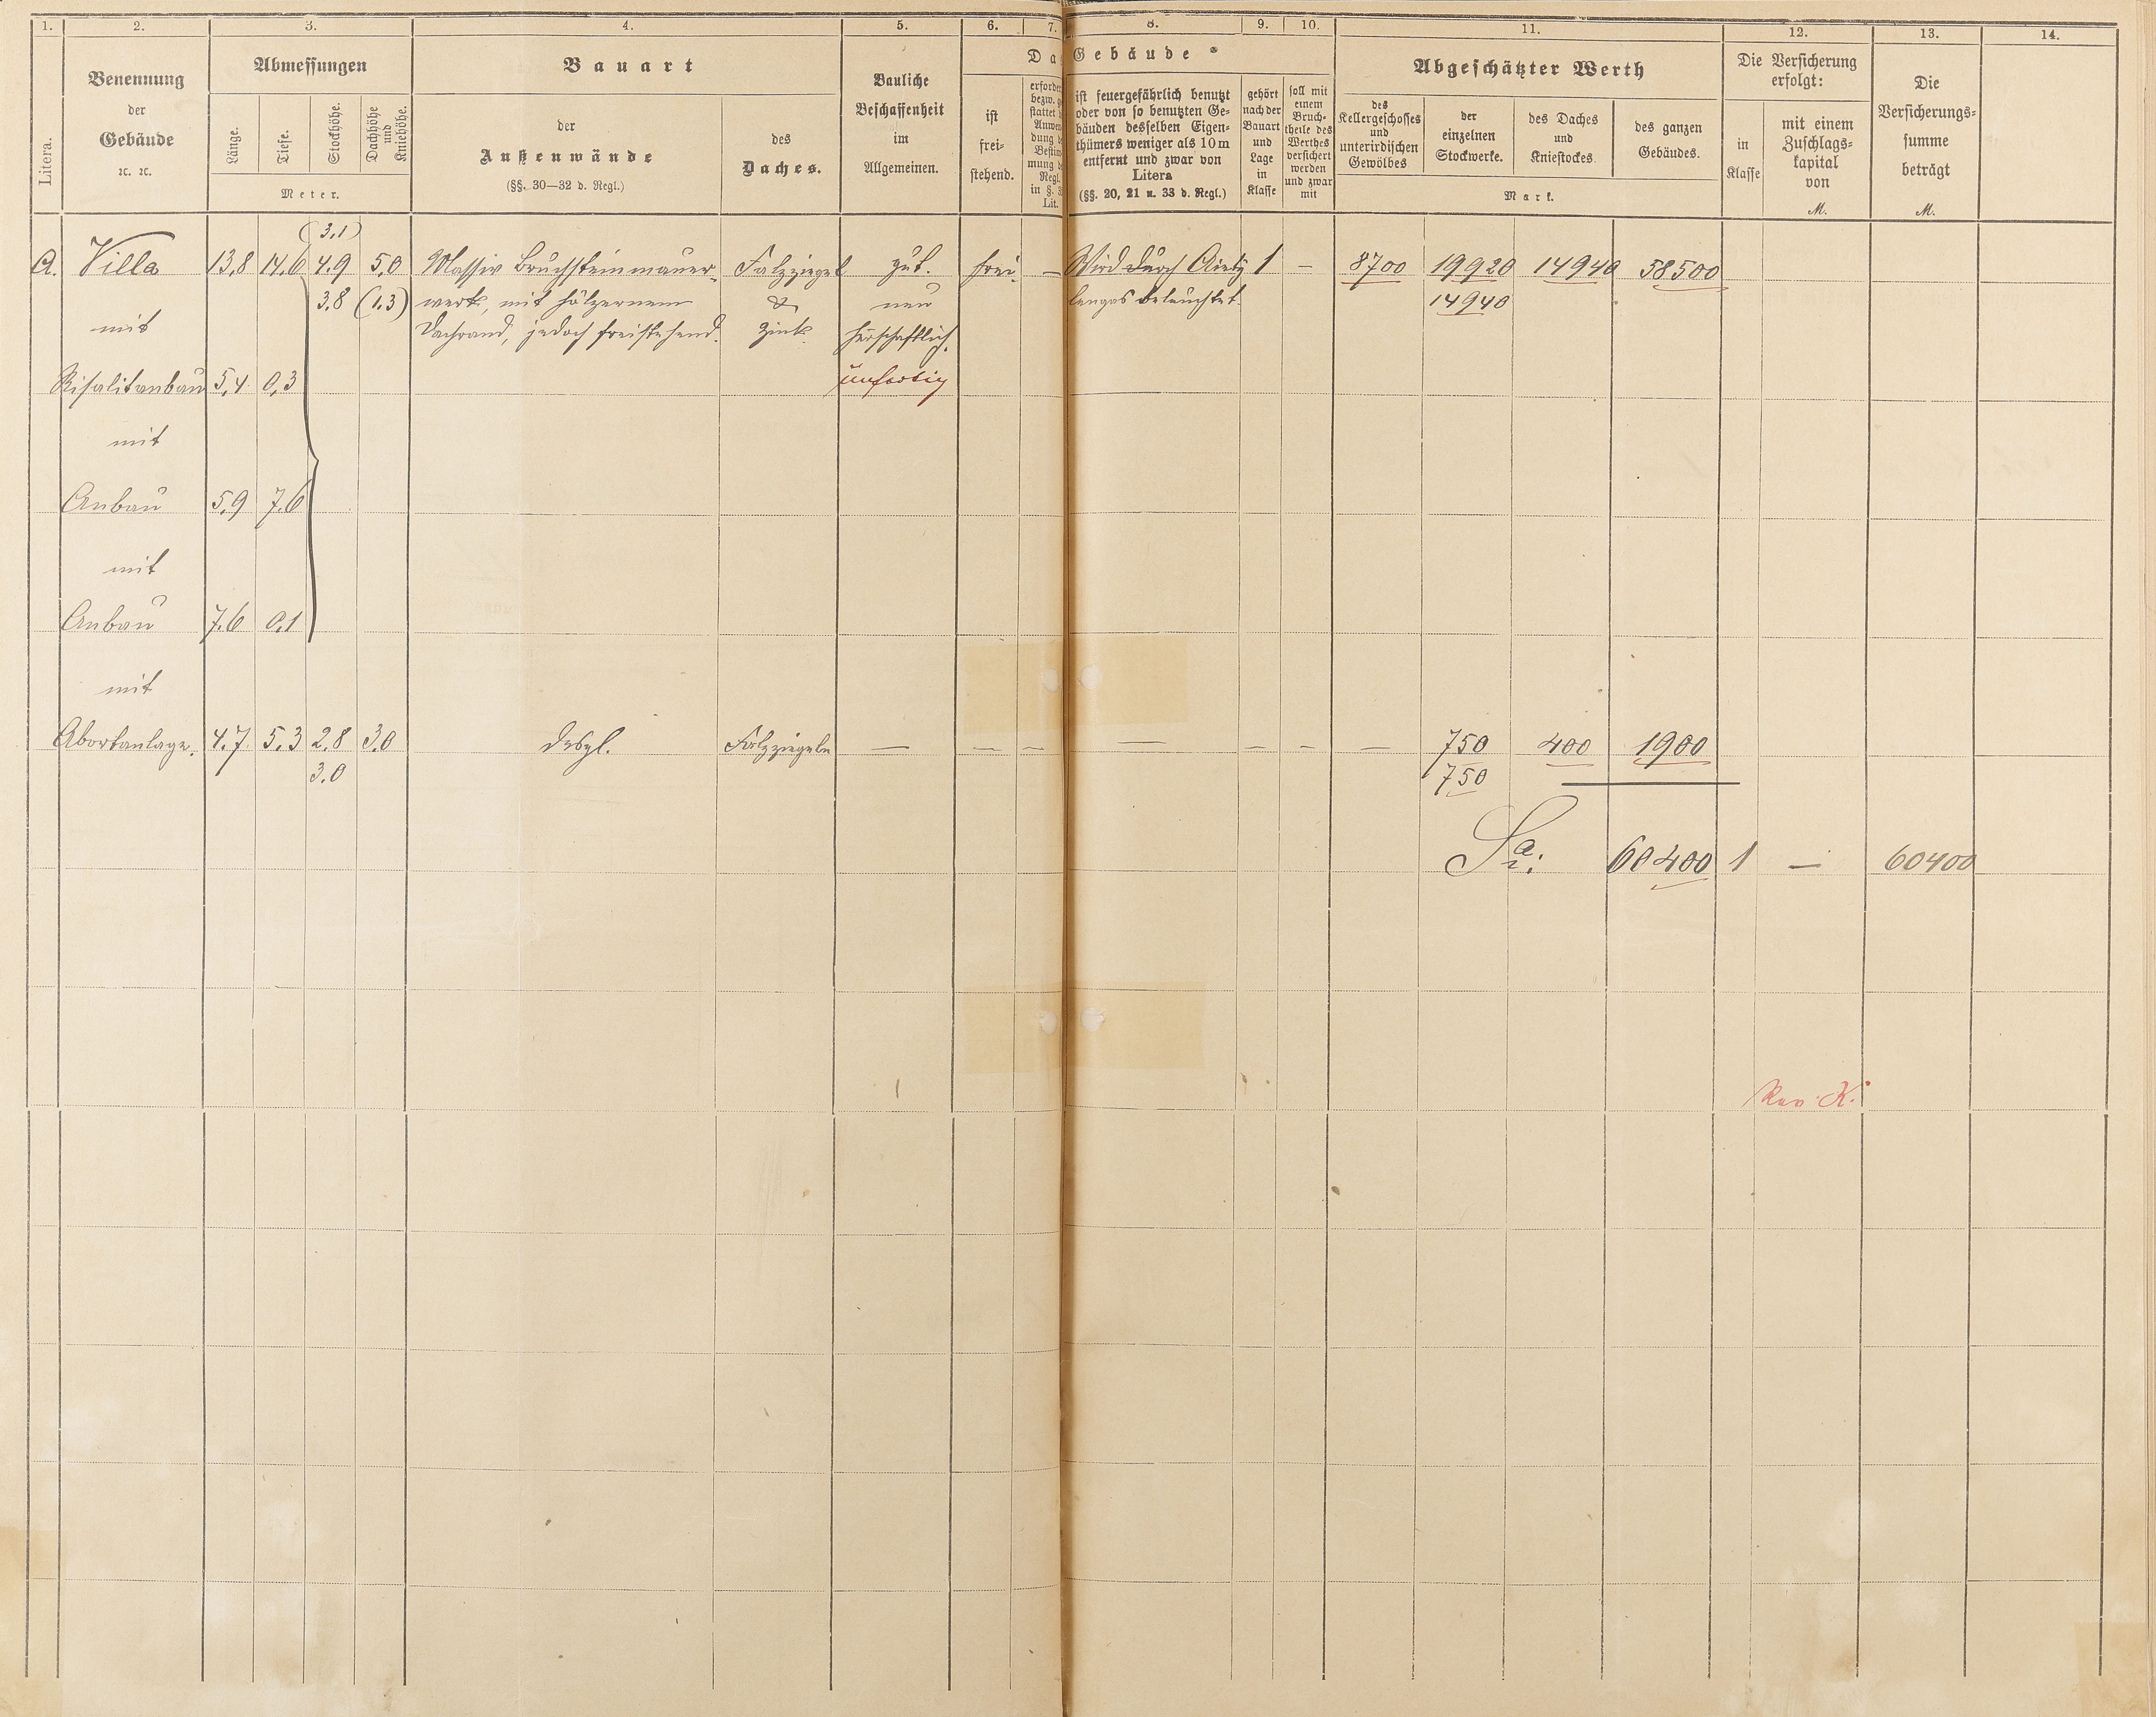 1. 2. 3. 4. 5. 6. 7. 8. 9. 10. 11. 12. 13. 14.
Litera.
Benennung
der
Gebäude
ꝛc. ꝛc.
Abmessungen
Länge.
Tiefe.
Stockhöhe.
Dachhöhe
und
Kniehöhe.
Meter.
Bauart
der
Außenwände
(§§. 30—32 d. Regl.)
des
Daches.
Bauliche
Beschaffenheit
im
Allgemeinen.
Da Gebäude
ist
frei-
stehend.
erforde
bezw. g
stattet
Anwen
dung
Bestim
mung
Regl.
in §. 3
Lit.
ist feuergefährlich benutzt
oder von so benutzten Ge-
bäuden desselben Eigen-
thümers weniger als 10 m
entfernt und zwar von
Litera
(§§. 20, 21 u. 33 d. Regl.)
gehört
nach der
Bauart
und
Lage
in
Klasse
soll mit
einem
Bruch-
theile des
Werthes
versichert
werden
und zwar
mit
Abgeschätzter Werth
des
Kellergeschosses
und
unterirdischen
Gewölbes
der
einzelnen
Stockwerke.
des Daches
und
Kniestockes
des ganzen
Gebäudes.
Mark.
Die Versicherung
erfolgt:
in
Klasse
mit einem
Zuschlags-
kapital
von
M.
Die
Versicherungs-
summe
beträgt
M.
(3,1)
A. Villa 13,8 14,6 4,9 5,0 Massiv Bruchsteinmauer- Falzziegel gut. frei. — Wird durch Acety 1 — 8700 19920 14940 58500
3,8 (1,3) werk, mit hölzernem & neu lengas beleuchtet. 14940
mit Dachrand, jedoch freistehend. Zink. herschaftlich.
Risalitanbau 5,4 0,3 unfertig
mit
Anbau 5,9 7,6
mit
Anbau 7,6 0,1
mit
Abortanlage. 4,7 5,3 2,8 3,0 desgl. Falzziegeln — — — — — — — 750 400 1900
3,0 750
Sa: 60400 1 — 60400
Rev. K.